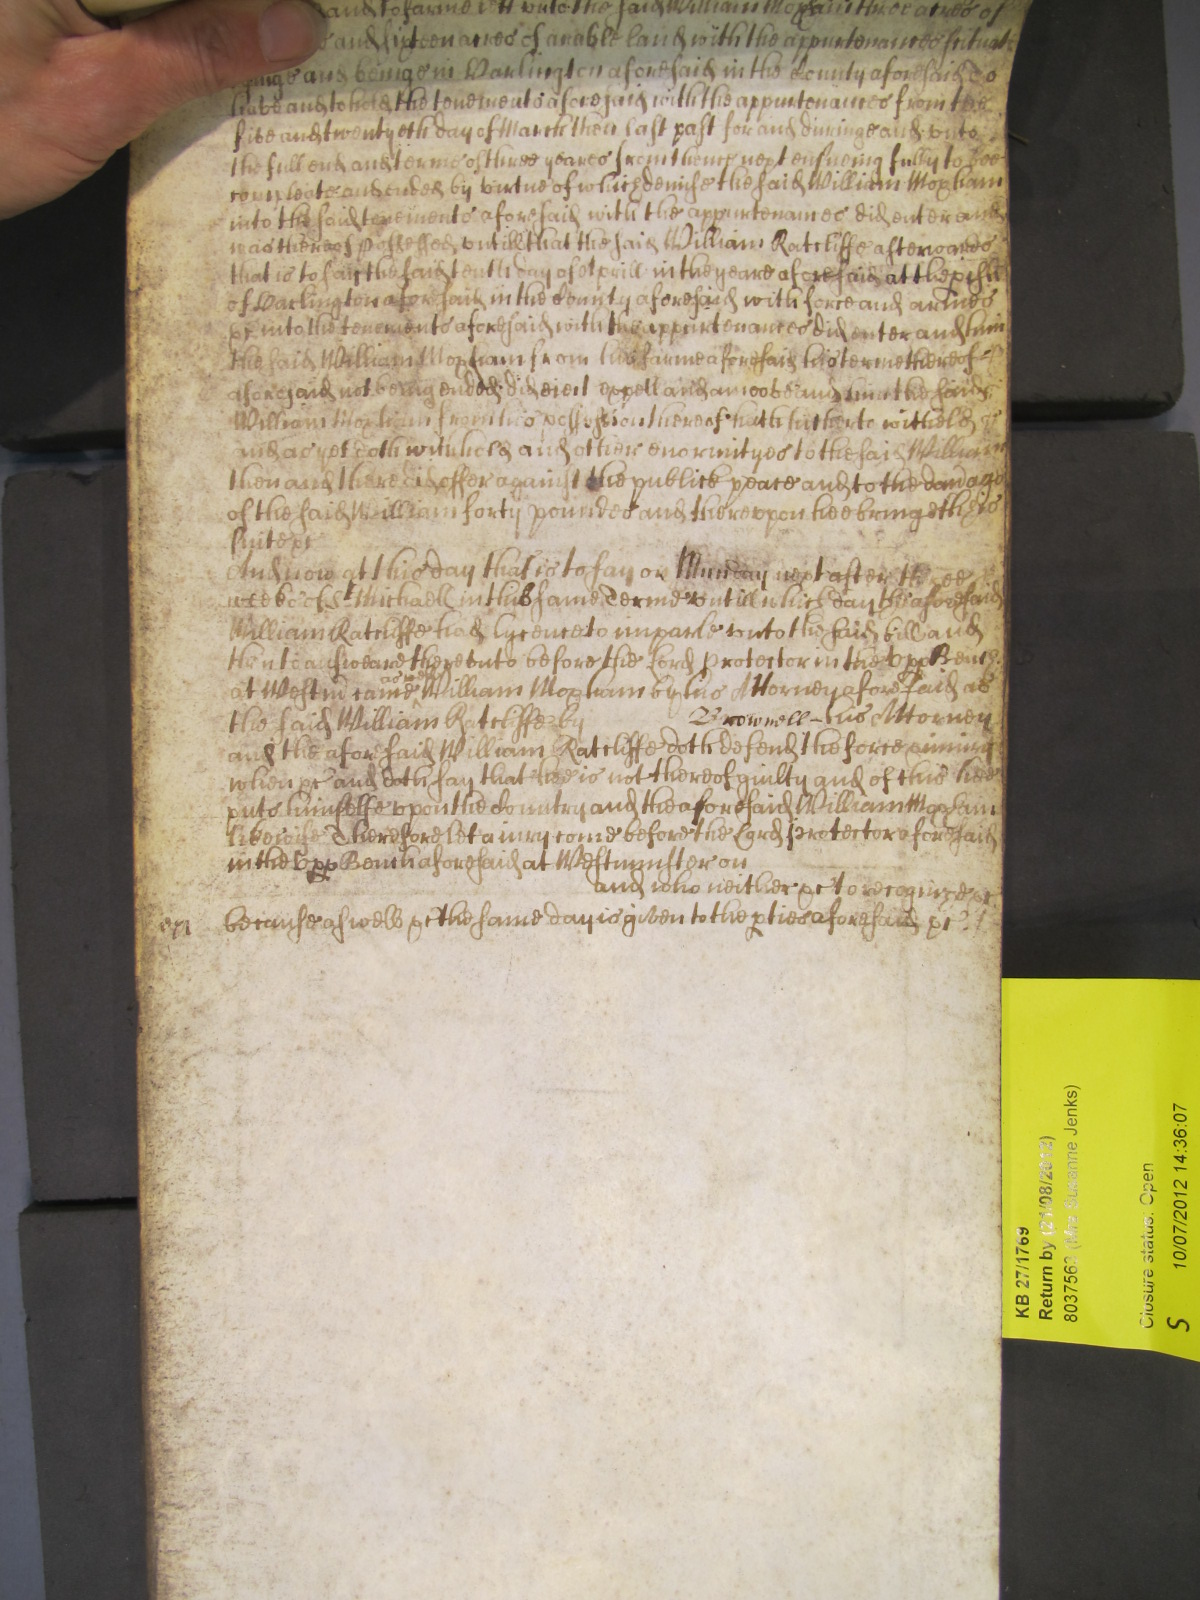 and to farme lett unto the said William Mopham three acres of
and sixteen acres of arable land with the appurtenances situate
lyinge and beinge in Darlington aforesaid in the County aforesaid To
have and to hold the tenements aforesaid with the appurtenances from the
five and twentyeth day of March then last past for and duringe and unto
the full end and terme of three yeares from thence next ensueing fully to bee
compleate and ended by virtue of which demise the said William Mopham
into the said tenements aforesaid with the appurtenances did enter and
was thereof possessed untill that the said William Ratcliffe afterwards
that is to say the said tenth day of Aprill in the yeare aforesaid at the pish
of Darlington aforesaid in the County aforesaid with force and armes
&c into the tenements aforesaid with the appurtenances did enter and him
the said William Mopham from his farme aforesaid his terme thereof
aforesaid not being ended did eject expell and amoove and him the said
William Mopham from his possession thereof hath hitherto withheld &
and as yet doth withhold and other enormityes to the said William
then and there did offer against the publick peace and to the damage
of the said William forty poundes and thereupon hee bringeth his
suite &c
And now at this day that is to say on Munday next after three
weeks of St Michaell in this same Terme untill which day the aforesaid
William Ratcliffe had lycence to imparle unto the said bill and
then to answeare thereunto before the Lord Protector in the Upp Bench
at Westm came as well William Mopham by his Attorney aforesaid as
the said William Ratcliffe by Brownell his Attorney
and the aforesaid William Ratcliffe doth defend the force & iniury
when &c and doth say that hee is not thereof guilty and of this hee
puts himselfe upon the Country and the aforesaid William Mopham
likewise Therefore let a iury come before the Lord Protector aforesaid
in the Upp Bench aforesaid at Westminster on
and who neither &c to recognize &c
because aswell &c the same day is given to the pties aforesaid &c
KB 27/1769
Return by (21/08/2012)
8037562 (Mrs Susanne Jenks)
Closure status: Open
10/07/2012 14:36:07
S